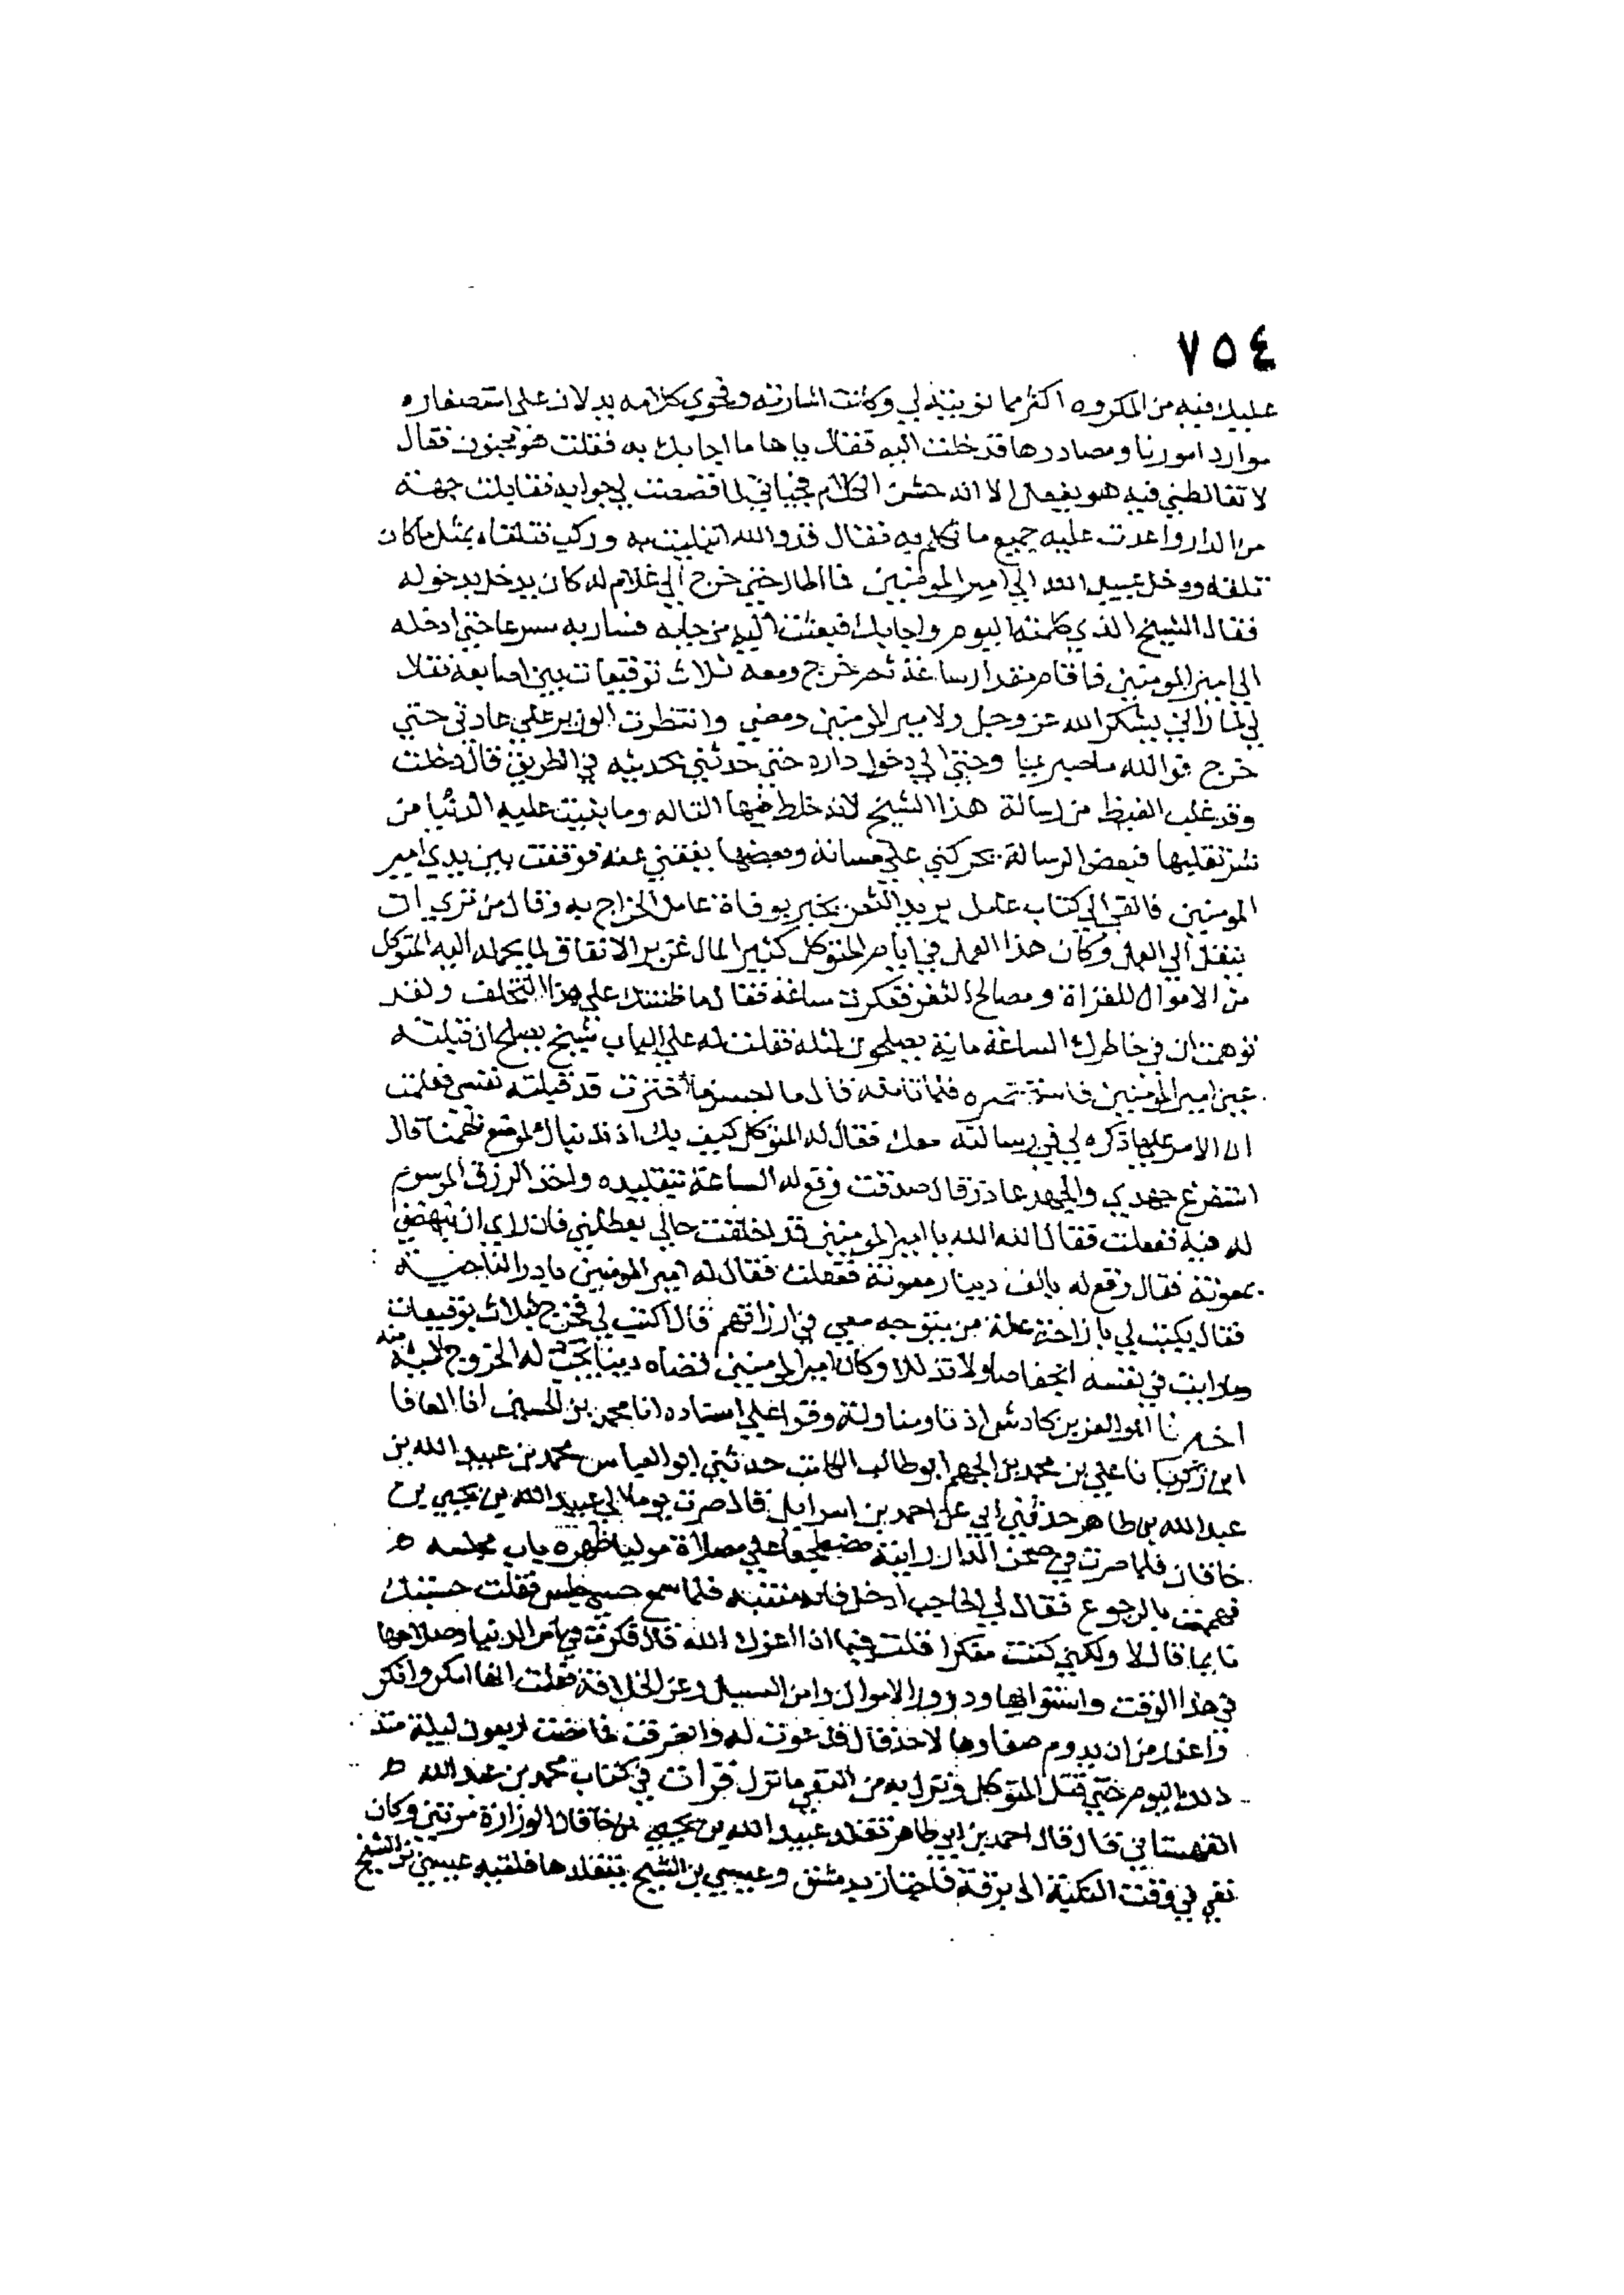 ٧٥٤
عليك فيه من المكروه اكثر مما نويته لي وكانت اشارته وفحوي كلامه يدلان على استصغاره
موارد امورنا ومصادرها قد خلت اليه فقال يا هذا ما اجابك به فقلت هو مجنون فقال
لا تغالطني فيه هو يفعل الا انه خشن الكلام فجيأني لما قصعت لي جوابه فقابلت جهة
من الدار واعدت عليه جميع ما تكلم به فقال قد والله ابتليت به وركب فتلقاه بمثل ما كان
تلقاه ودخل عبيد الله الي امير المومنين فما اطال حتي خرج الي غلام له كان يدخل بدخوله
فقال الشيخ الذي كلمته اليوم واجابك فبعثت اليه من جابه فسار به مسرعا حتي ادخله
الي امير المومنين فاقام مقدار ساعة ثم خرج ومعه ثلاث توقيعات بين اصابعه فقال
لي لما رآني يشكر الله عز وجل ولامير المومنين ومضي وانتظرت الوزير علي عادتي حتي
خرج فوالله ما صبر عنا وحتي الي دخول داره حتي حدثني بحديثه في الطريق قال دخلت
وقد غلب الغيظ من رسالة هذا الشيخ لانه خلط فيها التاله وما بنيت عليه الدنيا من
نشز تقلبها فبعض الرسالة يحركني علي مساته وبعضها يقفني عنه فوقفت بين يدي امير
المومنين فالقي الي كتاب عامل بريد الثغر يخبر بوفاة عامل الخراج به وقال من تري ان
ينفذ الي العمل وكان هذا العمل في ايام المتوكل كثير المال غزير الانفاق لما يحمله اليه المتوكل
من الاموال للغزاة ومصالح الثغر ففكرت ساعة فقال ما ظننتك علي هذا التخلف ولقد
توهمت ان في خاطرك الساعة ماية يصلحون لمثله فقلت له علي الباب شيخ يصلح ان قبلته
عين امير المومنين فاستحضره فلما تامله قال ما احسن ما اخترت قد قبلته نفسي فعلمت
ان الامر علي ما ذكره لي في رسالته معك فقال له المتوكل كيف بك اذ ندبناك لموضع يهمنا قال
استفرغ جهدي والمجهد عاذر قال صدقت وقع له الساعة بتقليده واخذ الرزق الموسوم
له فيه ففعلت فقال الله الله يا امير المومنين قد اخلقت حالي بعطلتي فان راي ان ينهضني
بمعونة فقال وقع له بالف دينار معونة ففعلت فقال له امير المومنين بادر الناحية
فقال يكتب لي بازاحة علة من يتوجه معي في ارزاقهم قال اكتب لي فخرج بثلاث توقيعات
وما رايت في نفسه انخفاصا ولا تذللا وكان امير المومنين قضاه دينا يجب له الخروج اليه منه
اخبرنا ابو العز بن كادش اذنا ومناولة وقرا علي اسناده انا محمد بن الحسين انا المعافا
ابن زكريا نا علي بن محمد بن الجهم ابو طالب الكاتب حدثني ابو العباس محمد بن عبيد الله بن
عبد الله بن طاهر حدثني ابي عن احمد بن اسرايل قال صرت يوما الي عبيد الله بن يحيي بن
خاقان فلما صرت في صحن الدار رايته مضطجعا علي مصلاه موليا ظهره باب مجلسه
فهممت بالرجوع فقال لي الحاجب ادخل فانه منتبه فلما سمع حسي جلس فقلت حسبتك
نايما قال لا ولكني كنت مفكرا قلت فيما اذا اعزك الله قال فكرت في امر الدنيا وصلاحها
في هذا الوقت واستوايها ودرور الاموال وامن السبيل وعز الخلافة فعلمت انها امكر وانكر
واغدر من ان يدوم صفاوها لاحد قال فدعوت له وانصرفت فما مضت اربعون ليلة منذ
ذلك اليوم حتي قتل المتوكل ونزل به من النفي ما نزل قرات في كتاب محمد بن عبد الله
القهستاني قال قال احمد بن ابي طاهر تقلد عبيد الله بن يحيي بن خاقان الوزارة مرتين وكان
نفي في وقت النكبة الي برقة فاجتاز بدمشق وعيسي بن الشيخ يتقلدها فلقيه عيسي بن الشيخ